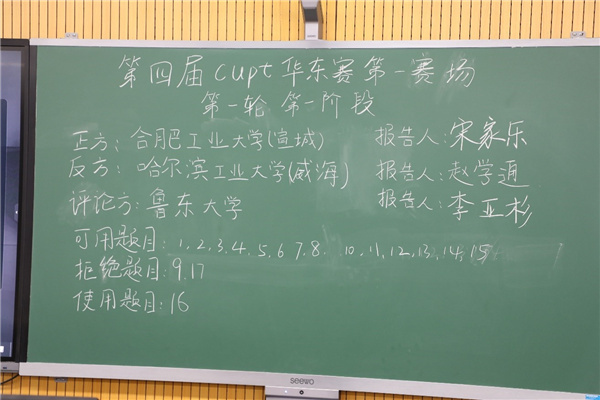 第四届cupt华东赛第一赛场
第一轮 第一阶段
正方：合肥工业大学(宣城) 报告人：宋家乐
反方：哈尔滨工业大学(威海) 报告人：赵学通
评论方：鲁东大学 报告人：李亚杉
可用题目：1,2,3,4,5,6 7,8. 10,11,12,13,14,15
拒绝题目：9,17
使用题目：16
seewo